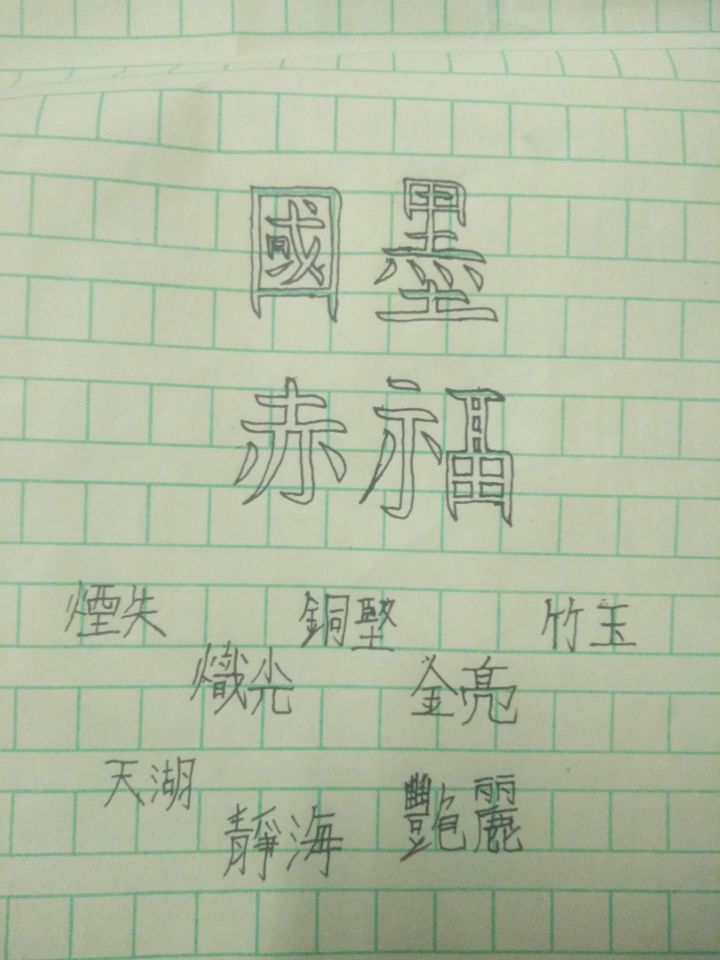 國墨
赤福
煙失 銅堅 竹玉
熾光 金亮
天湖
靜海 艷麗